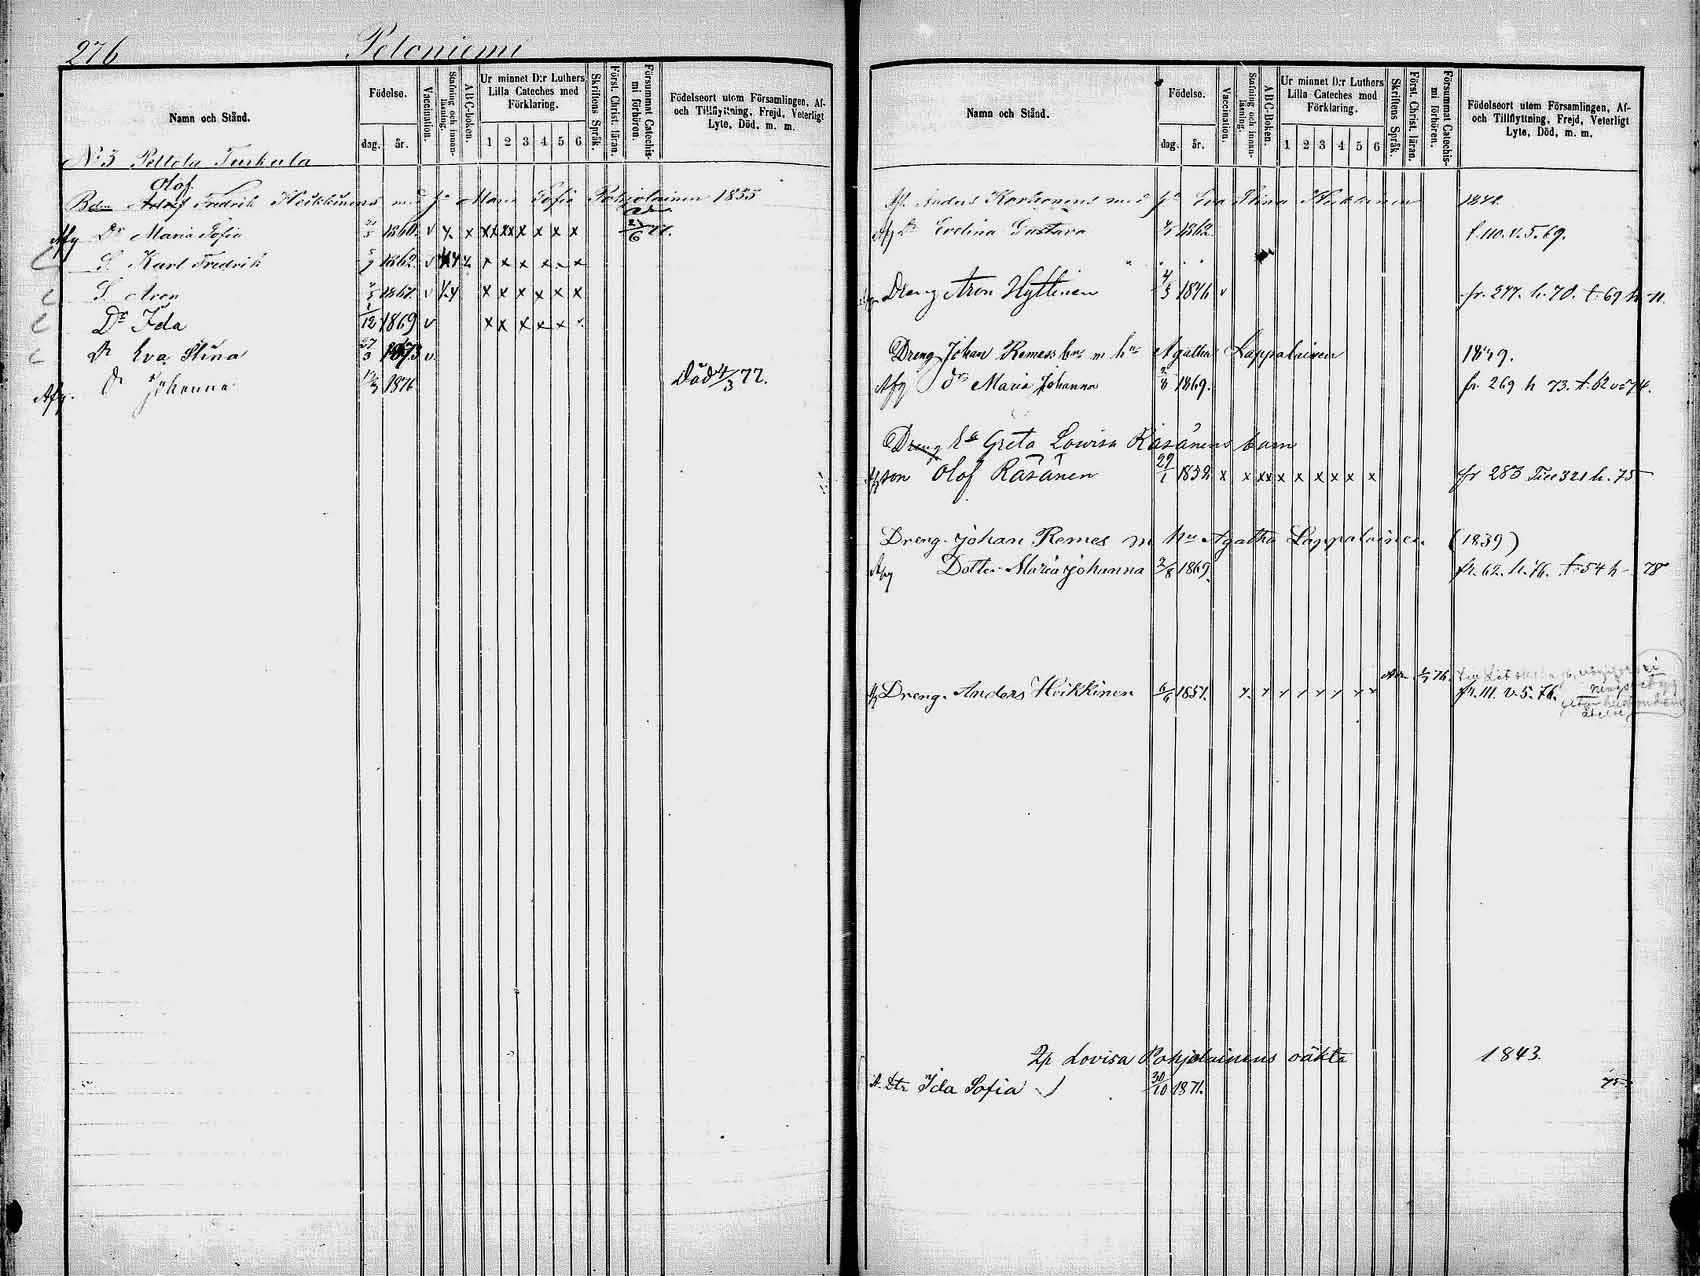 276 Peltoniemi
Namn och Stånd.
Födelse.
dag.
år.
Vaccination.
Stafning och innanläsning.
ABC-boken.
Ur minnet D:r Luthers
Lilla Cateches med
Förklaring.
1 2 3 4 5 6
Skriftens Språk.
Först. Christ. läran.
Försummat Catechismi förhören.
Födelseort utom Församlingen, Af-
och Tillflyttning, Frejd, Veterligt
Lyte, Död, m. m.
No 3 Peltola Turkula
Olof
Fredrik Heikkinens med Maria Sofia Pohjolainen 1835
Afg Dr Maria Sofia 1860 v x x x x x x x x
S. Karl Fredrik 1862 v x x x x x x
S. Aron 1867 v x x x x x x
Dr Ida 1869 v x x x x x
Dr Eva Stina 27/3 1873 v
Afg. Dr Johanna 1876 Död 4/3 77.
Namn och Stånd.
Födelse.
dag.
år.
Vaccination.
Stafning och innanläsning.
ABC-Boken.
Ur minnet D:r Luthers
Lilla Cateches med
Förklaring.
1 2 3 4 5 6
Skriftens Språk.
Först. Christ. läran.
Försummat Catechismi förhören.
Födelseort utom Församlingen, Af-
och Tillflyttning, Frejd, Veterligt
Lyte, Död, m. m.
Anders Korhonens med Eva Stina Heikkinen
Afg Dr Evelina Gustava 1862 t. 110. v. 5. 69.
Dreng Aron Hyttinen 4/3 1846 v fr. 277. h. 70. t. 69 h. 71.
Dreng Johan Remess m hu Agatha Lappalainen 1839.
Afg dr Maria Johanna 2/8 1869. fr. 269 h 73. t. 62 v 5 74.
Dreng Greta Lovisa Räsänens barn
son Olof Räsänen 29/1 1832 x x x x x x x x x x fr 283 h. 75
Dreng Johan Remes m hu Agatha Lappalainen (1839)
Afg Dotter Maria Johanna 2/8 1869. fr. 62. h. 76. t. 54 h 78
Dreng Anders Heikkinen 6/6 1851. fr. 111. v. 5. 76.
Lovisa Pohjolainens oäkta 1843.
Dtr Ida Sofia 30/10 1871.